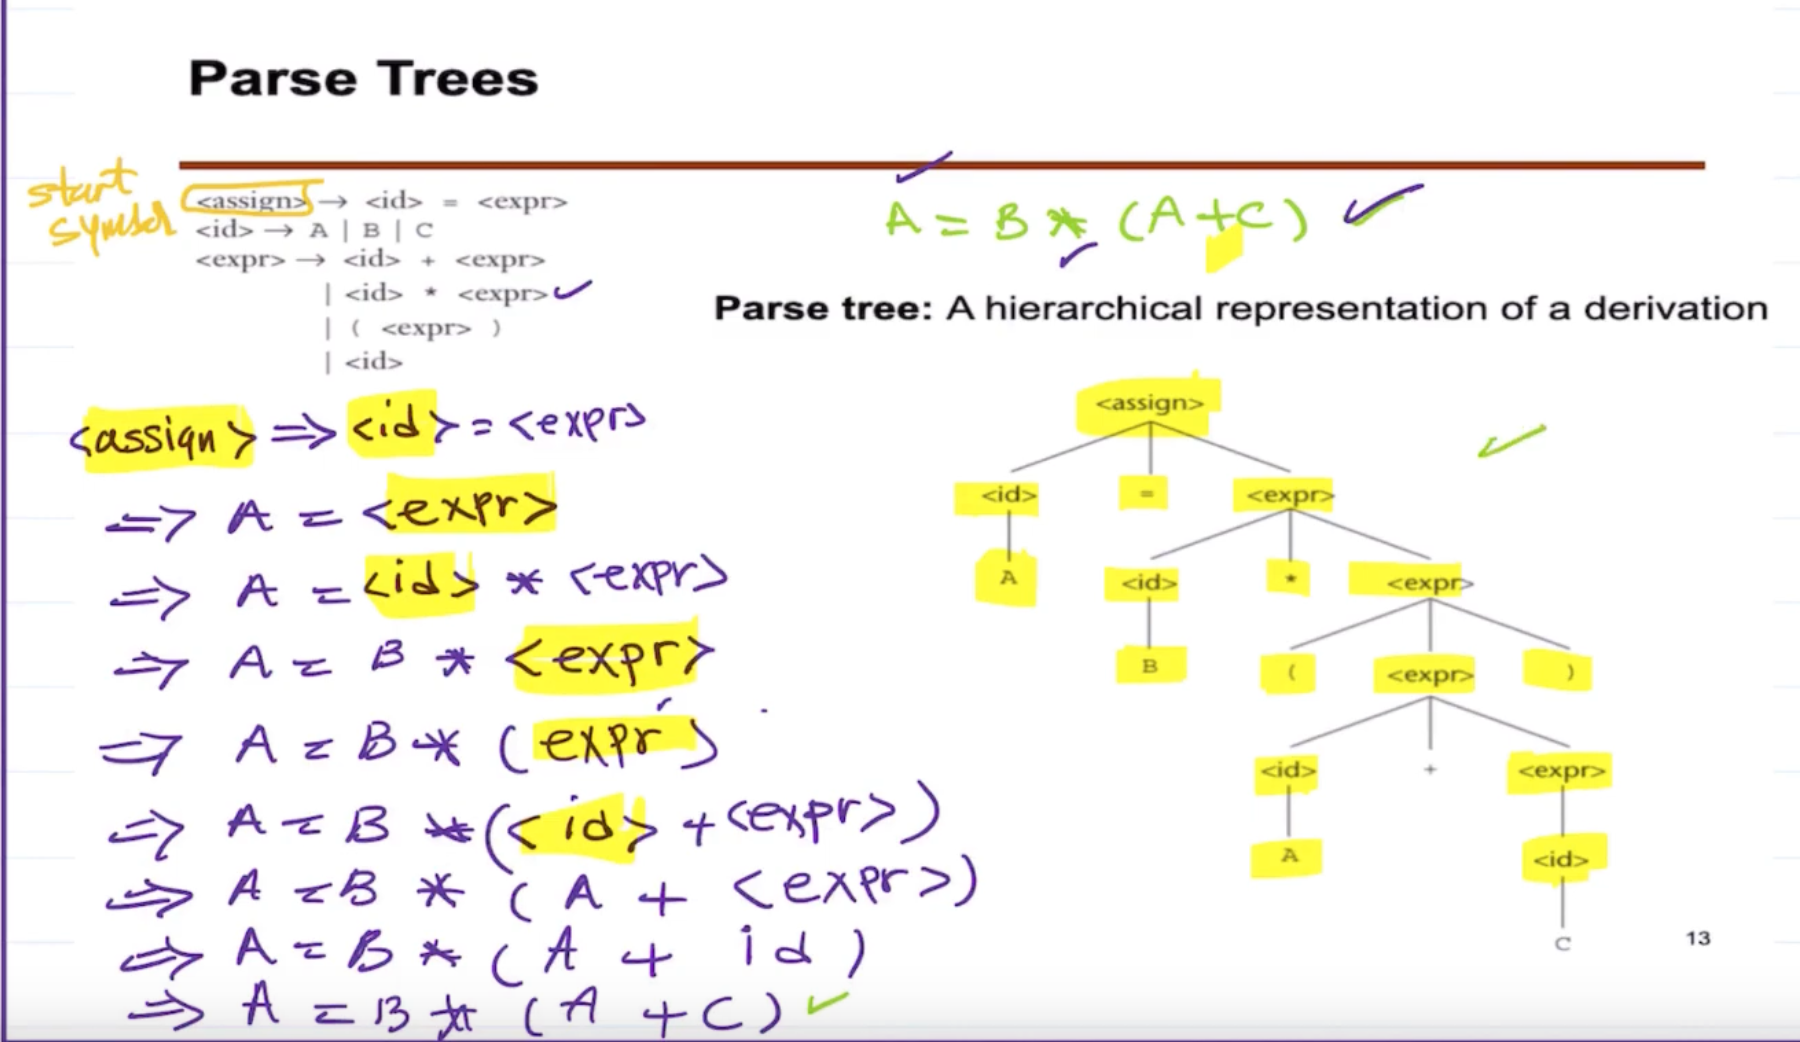 Parse Trees
start
symbol
<assign> → <id> = <expr>
<id> → A | B | C
<expr> → <id> + <expr>
| <id> * <expr>
| ( <expr> )
| <id>
A = B * (A+C)
Parse tree: A hierarchical representation of a derivation
<assign> => <id> = <expr>
=> A = <expr>
=> A = <id> * <expr>
=> A = B * <expr>
=> A = B * (expr)
=> A = B * (<id> + <expr>)
=> A = B * (A + <expr>)
=> A = B * (A + id)
=> A = B * (A + C)
<assign>
<id> = <expr>
A <id> * <expr>
B ( <expr> )
<id> + <expr>
A <id>
C
13